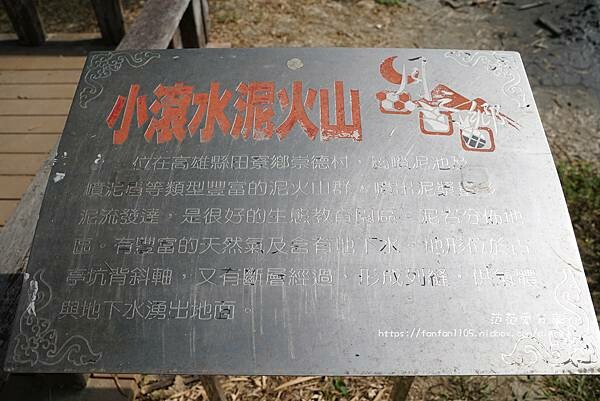 小滾水泥火山
月
鄉
位在高雄縣田寮鄉崇德村,為噴泥池及
噴泥盾等類型豐富的泥火山群,噴出泥漿
泥流發達,是很好的生態教育園區。泥岩分佈地
區。有豐富的天然氣及含有地下水,地形位於古
亭坑背斜軸,又有斷層經過,形成裂縫,供氣體
與地下水湧出地面。
https://fanfan1105.nidbox.com